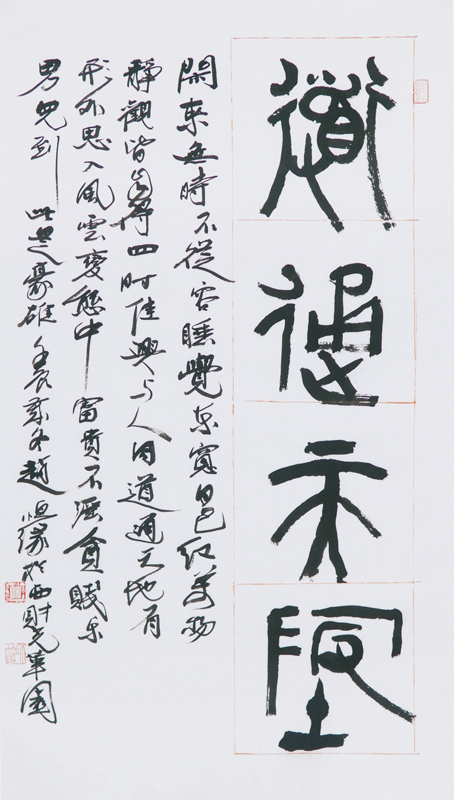 道通天地
閑来無時不從容睡覺东窗日已红萬物
靜觀皆自得四时佳興与人同道通天地有
形外思入風雲變態中富貴不淫貧賤乐
男兒到此是豪雄壬辰冬越恒缘於西財光華園